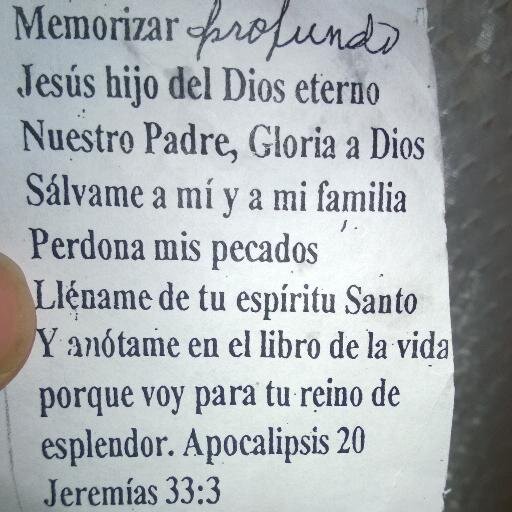 Memorizar profundo
Jesús hijo del Dios eterno
Nuestro Padre, Gloria a Dios
Sálvame a mí y a mi familia
Perdona mis pecados
Lléname de tu espíritu Santo
Y anótame en el libro de la vida
porque voy para tu reino de
esplendor. Apocalipsis 20
Jeremías 33:3